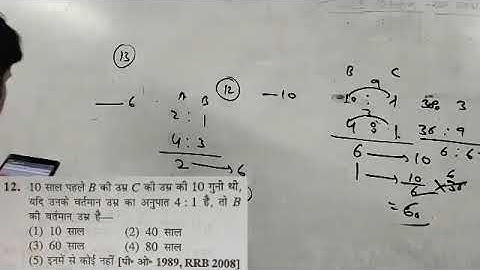 13
12
— 6
A B
2 : 1
4 : 3
2 → 6
— 10
B C
9
10 : 1
3
4 : 1
6 → 10
1 → 10
6
= 60
3
36 : 9
6 : 6
12. 10 साल पहले B की उम्र C की उम्र की 10 गुनी थी,
यदि उनके वर्तमान उम्र का अनुपात 4 : 1 है, तो B
की वर्तमान उम्र है—
(1) 10 साल (2) 40 साल
(3) 60 साल (4) 80 साल
(5) इनमें से कोई नहीं [पी॰ ओ॰ 1989, RRB 2008]